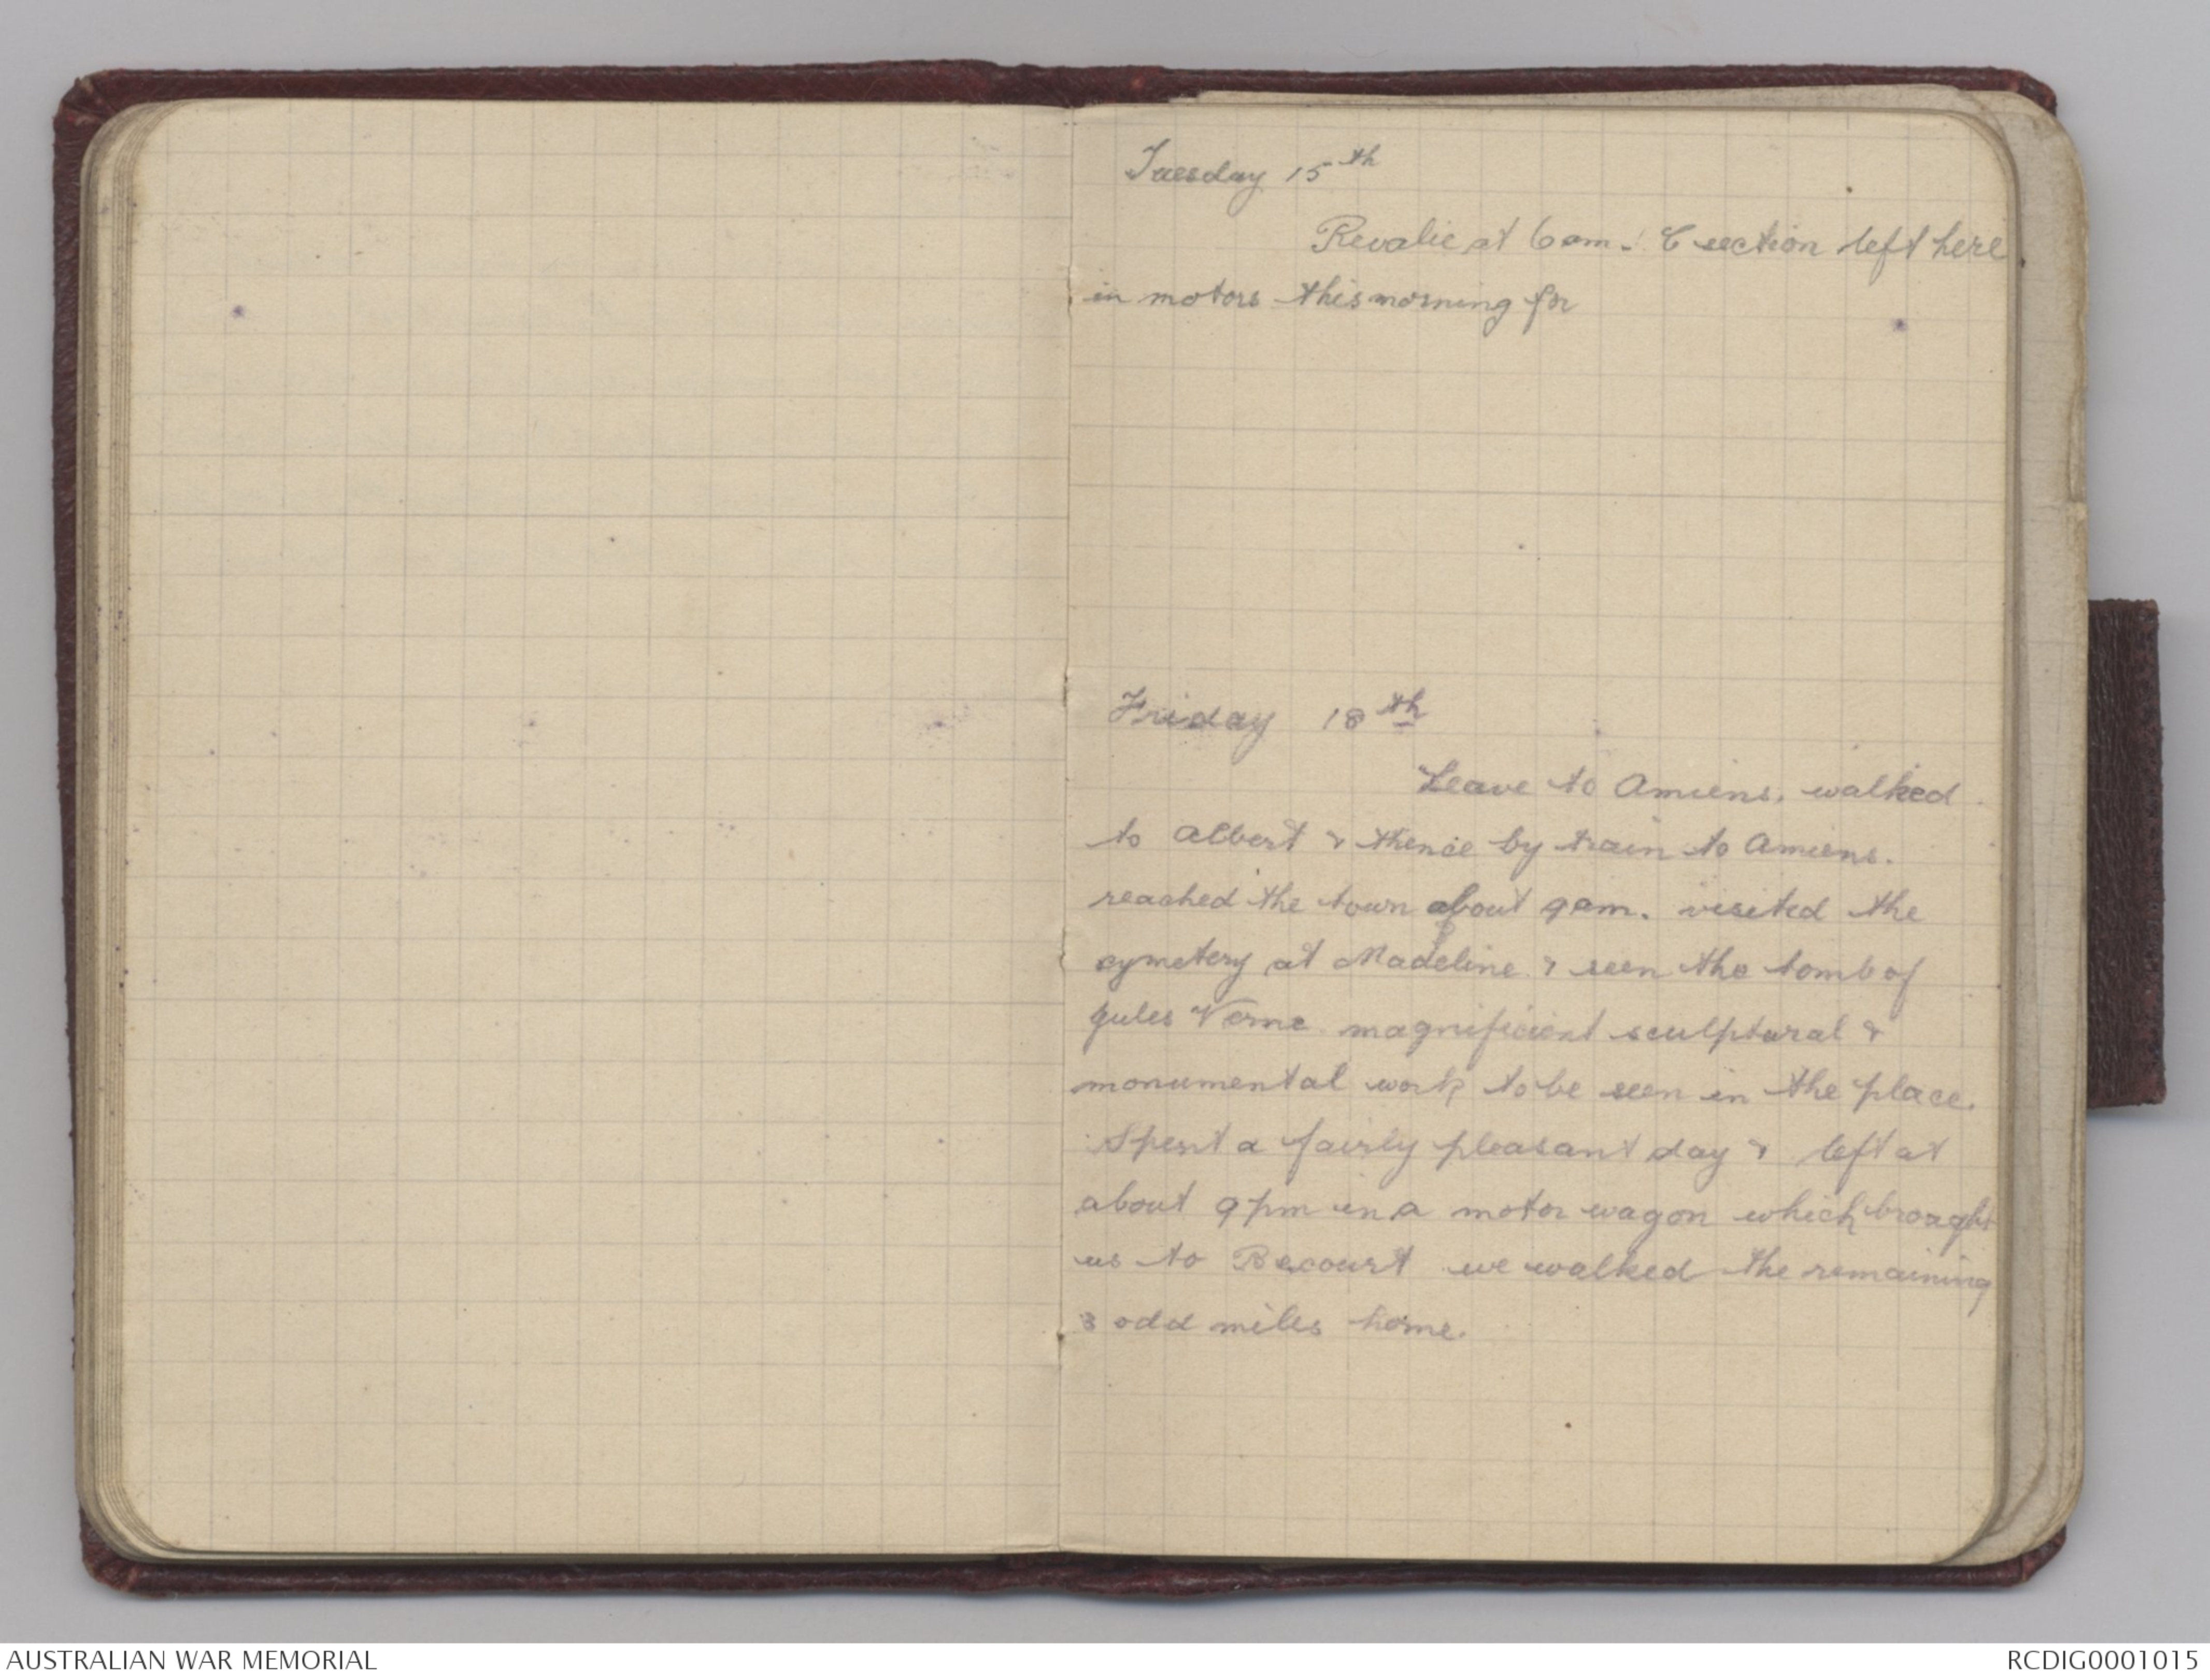 Tuesday 15th
Revalie at 6 am. C section left here
in motors this morning for
Friday 18th
Leave to Amiens, walked
to Albert & thence by train to Amiens.
reached the town about 9am. visited the
cymetery at Madeline & seen the tomb of
Jules Verne. magnificient sculptural &
monumental work to be seen in the place.
Spent a fairly pleasant day & left at
about 9pm in a motor wagon which brought
us to Becourt we walked the remaining
3 odd miles home.
AUSTRALIAN WAR MEMORIAL
RCDIG0001015